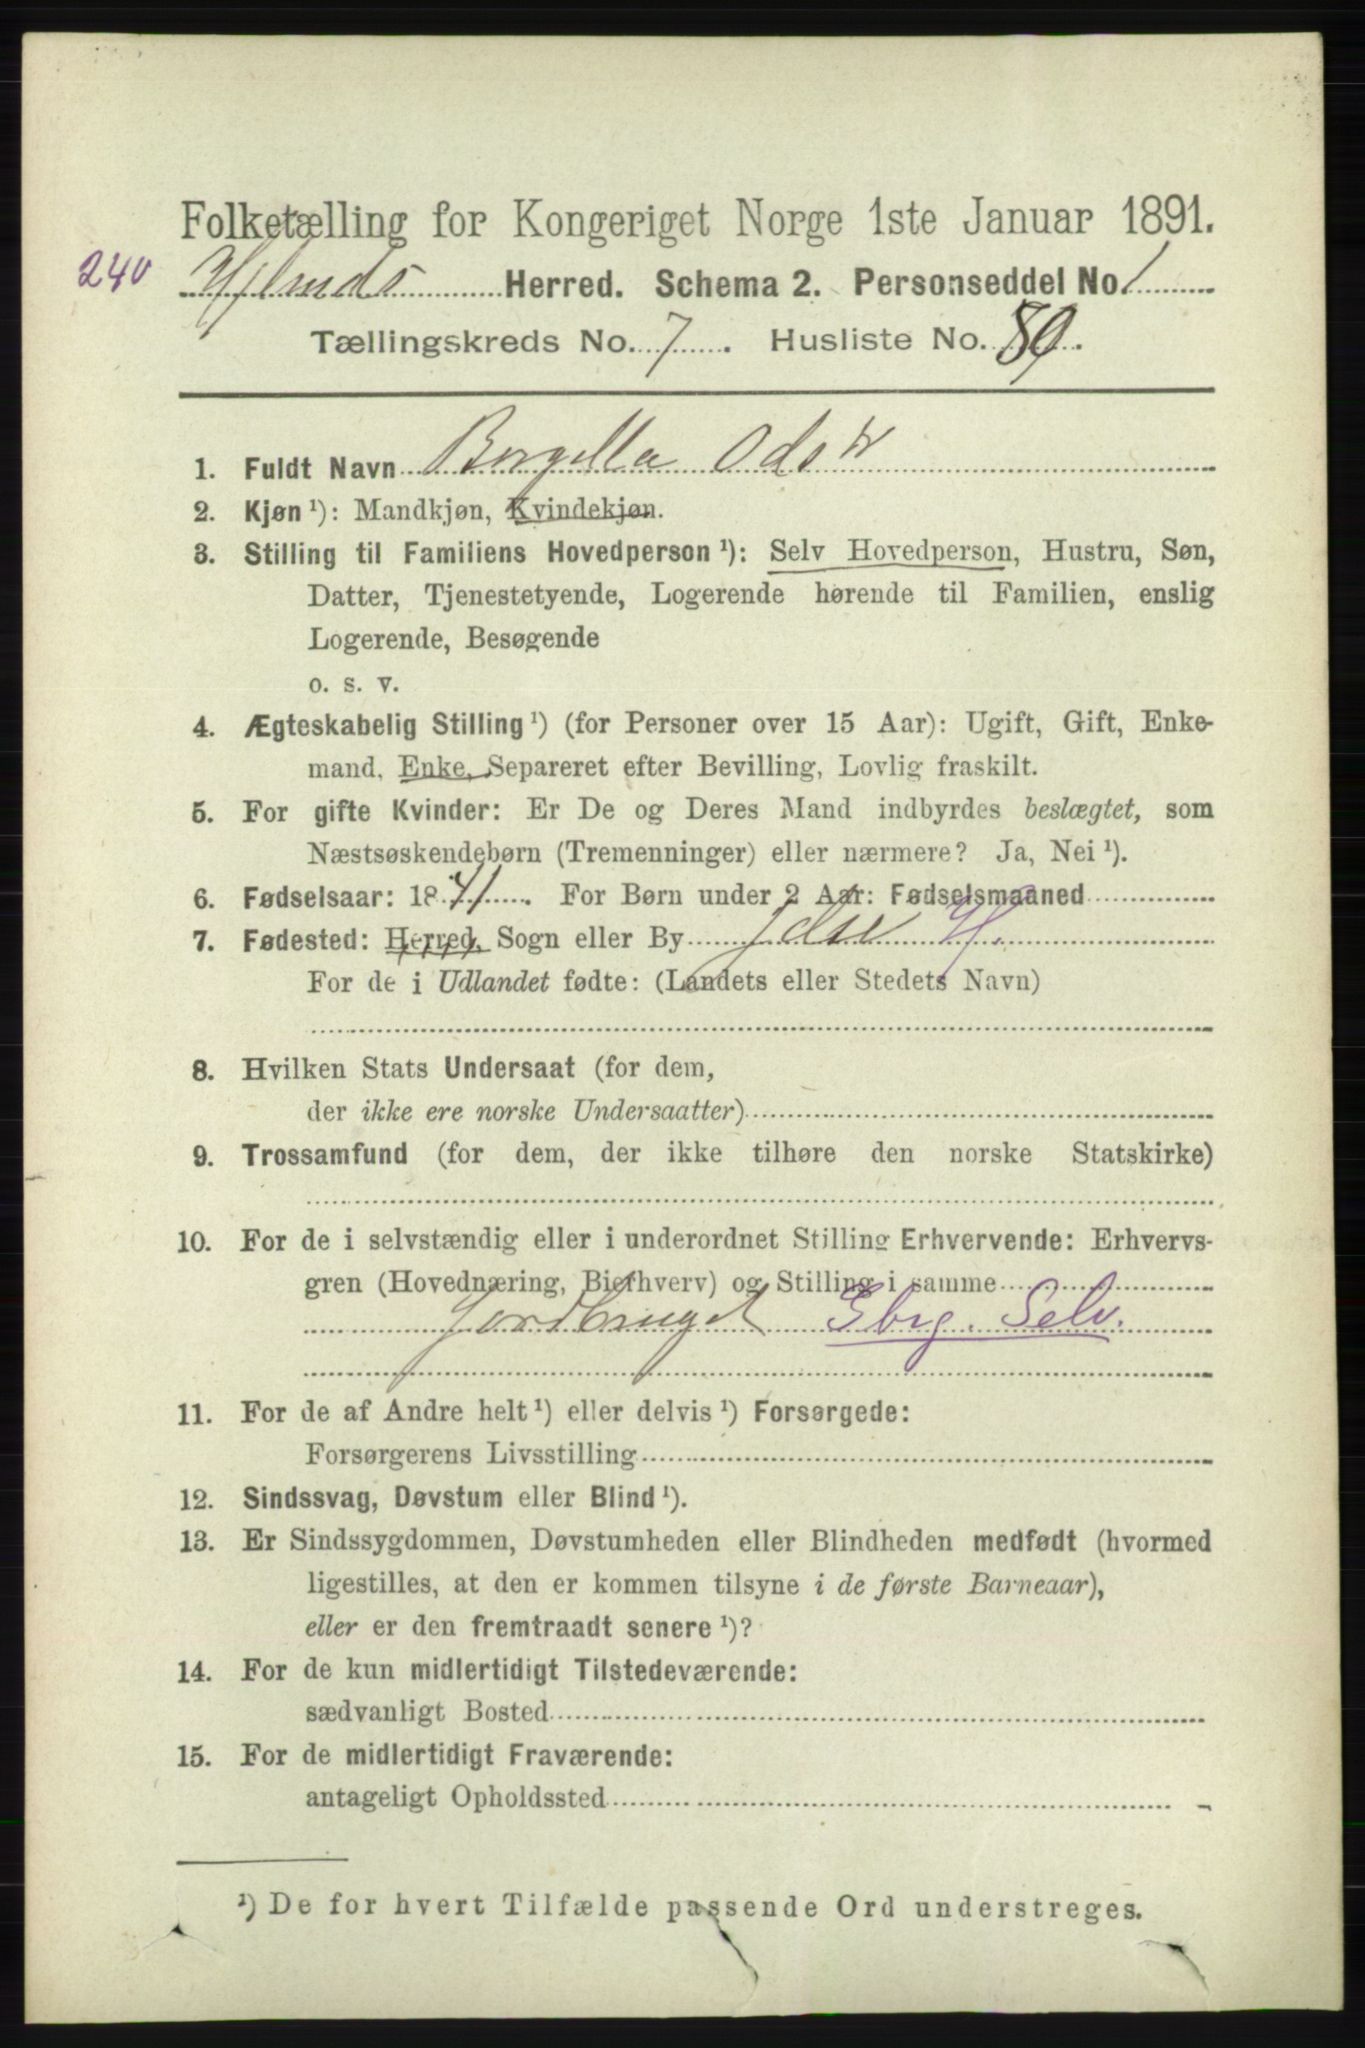 Folketælling for Kongeriget Norge 1ste Januar 1891.
240 Herred. Schema 2. Personseddel No. 1
Tællingskreds No. 7. Husliste No. 89.
1. Fuldt Navn Ods
2. Kjøn ¹): Mandkjøn, Kvindekjøn.
3. Stilling til Familiens Hovedperson ¹): Selv Hovedperson, Hustru, Søn,
Datter, Tjenestetyende, Logerende hørende til Familien, enslig
Logerende, Besøgende
o. s. v.
4. Ægteskabelig Stilling ¹) (for Personer over 15 Aar): Ugift, Gift, Enke-
mand, Enke, Separeret efter Bevilling, Lovlig fraskilt.
5. For gifte Kvinder: Er De og Deres Mand indbyrdes beslægtet, som
Næstsøskendebørn (Tremenninger) eller nærmere? Ja, Nei ¹).
6. Fødselsaar: 1841. For Børn under 2 Aar: Fødselsmaaned
7. Fødested: Herred, Sogn eller By H.
For de i Udlandet fødte: (Landets eller Stedets Navn)
8. Hvilken Stats Undersaat (for dem,
der ikke ere norske Undersaatter)
9. Trossamfund (for dem, der ikke tilhøre den norske Statskirke)
10. For de i selvstændig eller i underordnet Stilling Erhvervende: Erhvervs-
gren (Hovednæring, Bierhverv) og Stilling i samme
Jordbruget Gbrg. Selv.
11. For de af Andre helt ¹) eller delvis ¹) Forsørgede:
Forsørgerens Livsstilling
12. Sindssvag, Døvstum eller Blind ¹).
13. Er Sindssygdommen, Døvstumheden eller Blindheden medfødt (hvormed
ligestilles, at den er kommen tilsyne i de første Barneaar),
eller er den fremtraadt senere ¹)?
14. For de kun midlertidigt Tilstedeværende:
sædvanligt Bosted
15. For de midlertidigt Fraværende:
antageligt Opholdssted
¹) De for hvert Tilfælde passende Ord understreges.